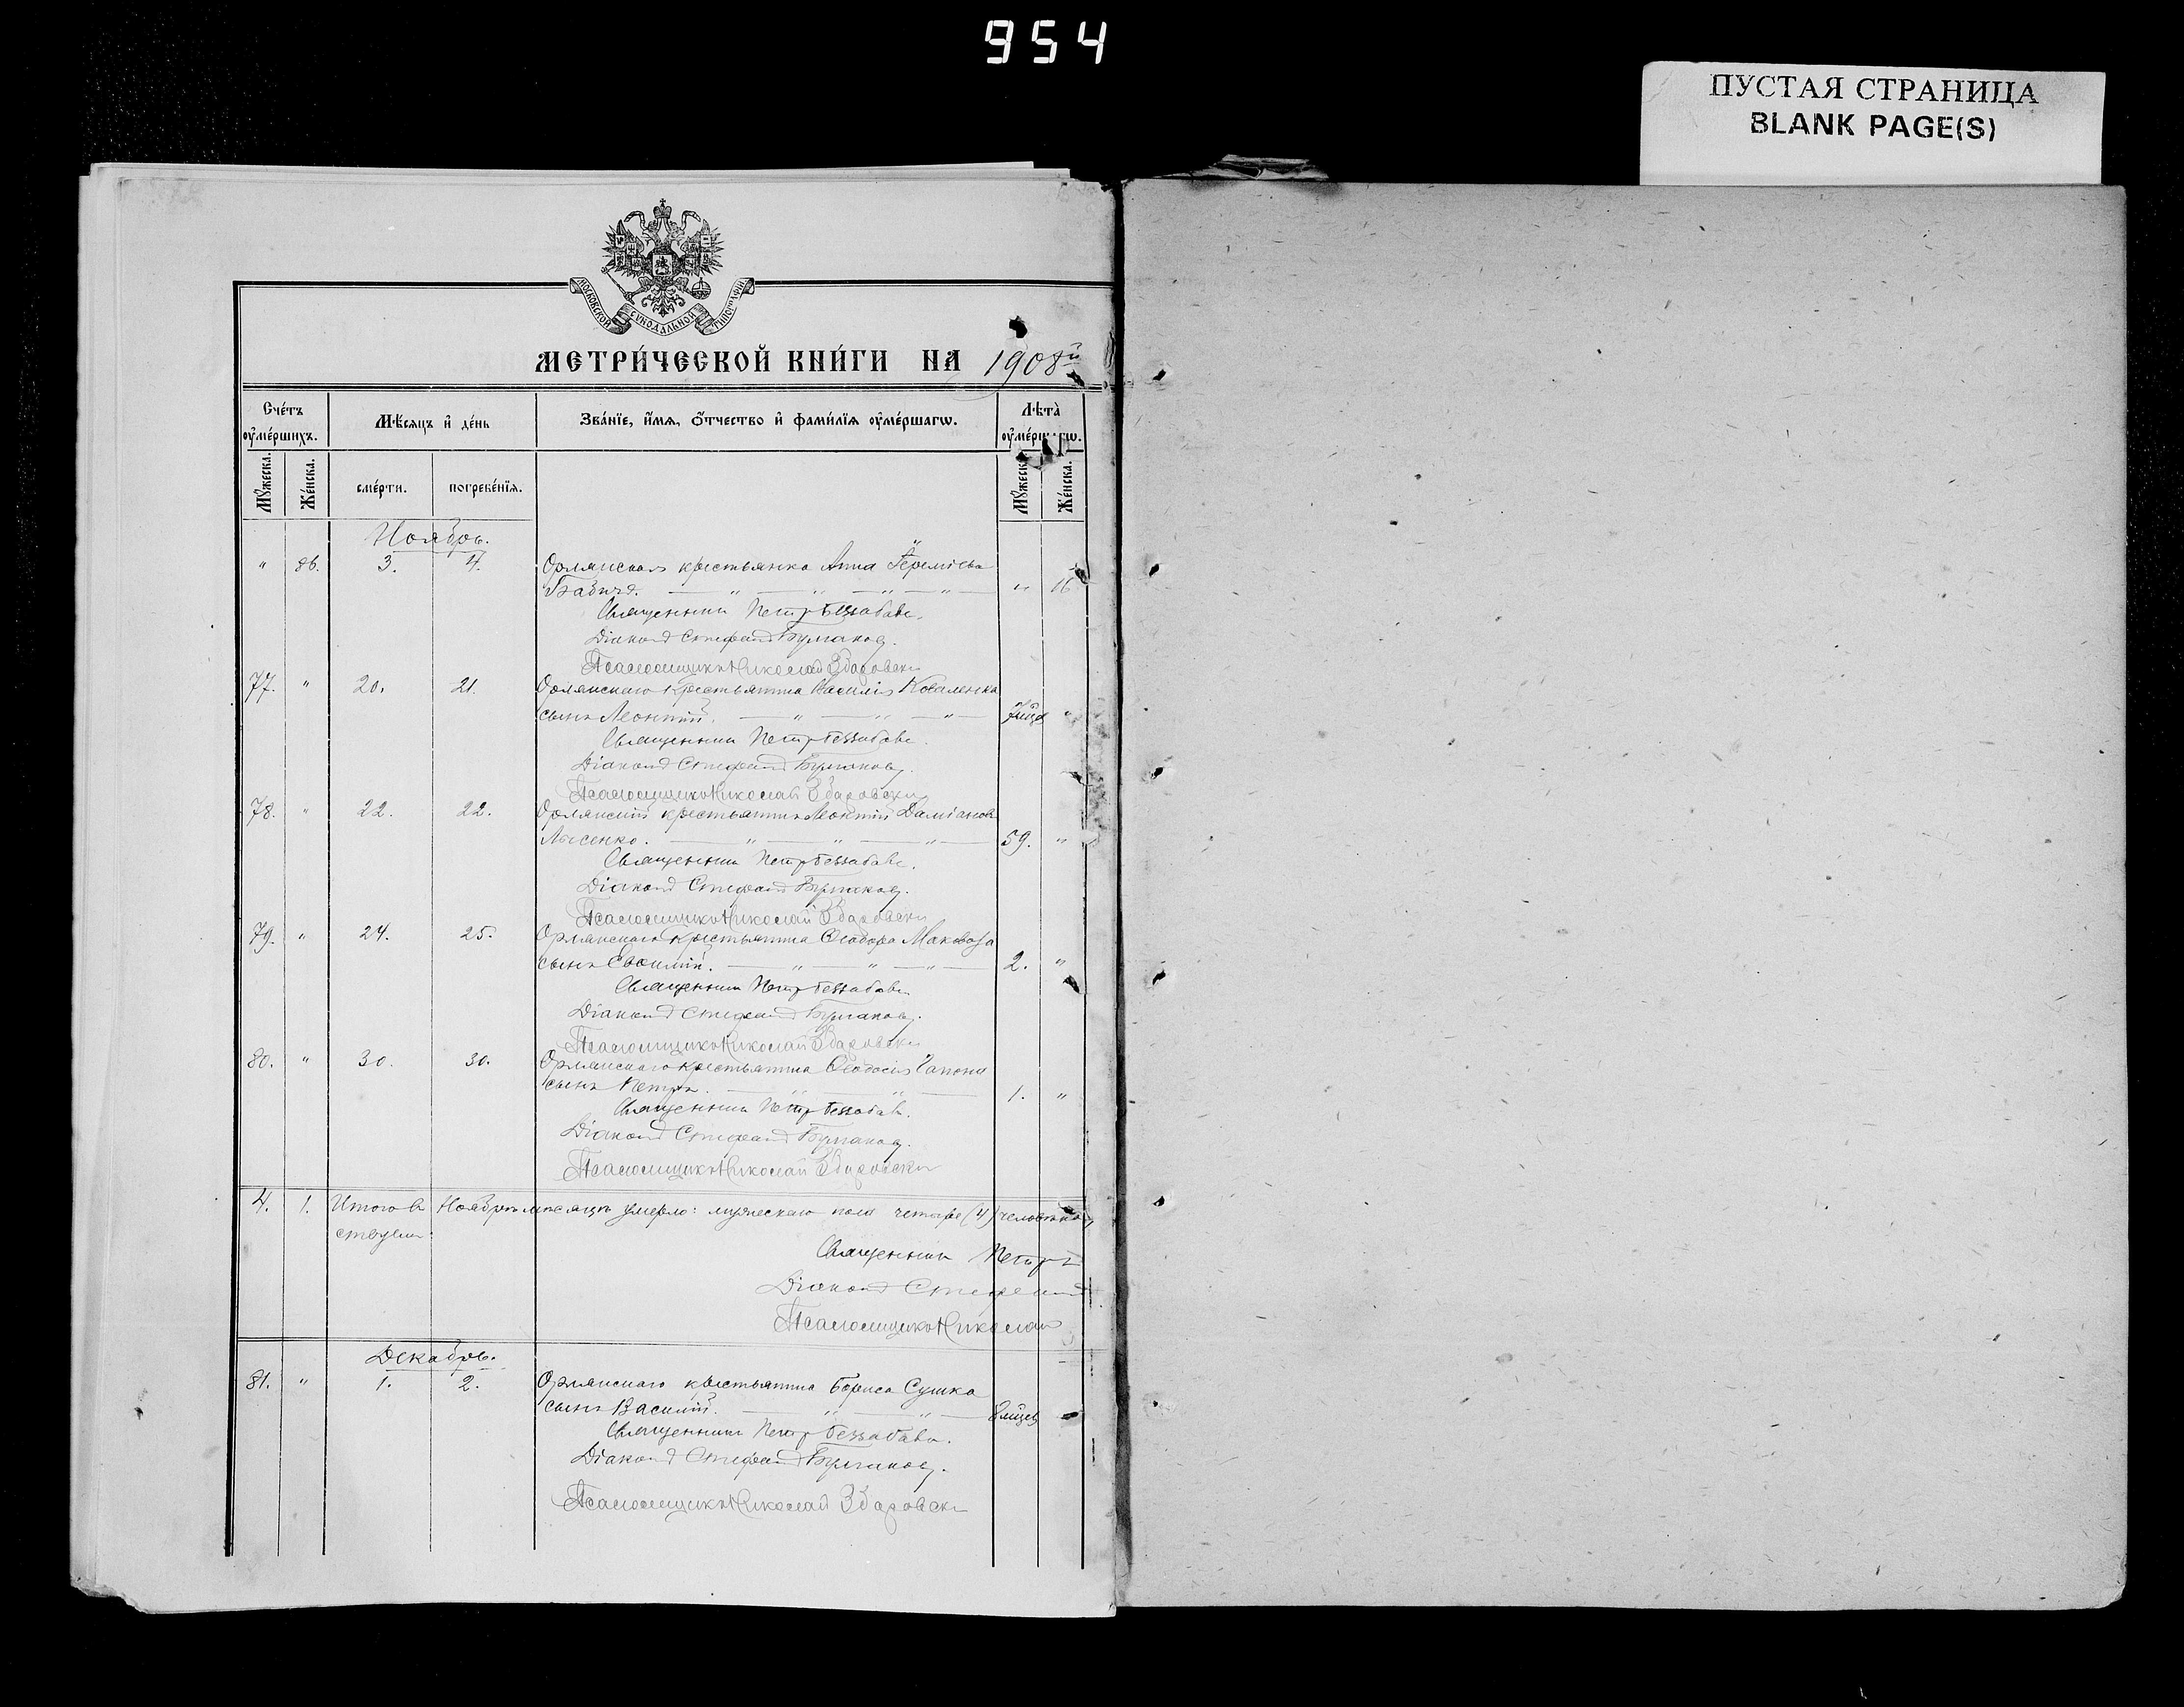 954
ПУСТАЯ СТРАНИЦА
BLANK PAGE(S)
МОСКОВСКОЙ СѴНОДАЛЬНОЙ ТИПОГРАФІИ
МЕТРИ́ЧЕСКОЙ КНИ́ГИ НА 1908й
Сче́тъ оу҆ме́ршихъ.
Мѣ́сяцъ и҆ де́нь
Зва́нїе, и҆́мѧ, ѻ҆́тчество и҆ фами́лїѧ оу҆ме́ршагѡ.
Лѣта̀ оу҆ме́ршагѡ.
Мꙋ́жеска.
Же́нска.
сме́рти.
погребе́нїѧ.
Мꙋ́жеска.
Же́нска.
Ноябрь.
" 86. 3. 4. Орлянская крестьянка Анна Іереміева
Бабичъ. — " — " — " — " — " 16.
Священникъ Петръ Беззабава.
Діаконъ Стефанъ Булгаковъ.
Псаломщикъ Николай Здаровски
77. " 20. 21. Орлянскаго крестьянина Василія Коваленка
сынъ Леонтій. — " — " — " — "
Священникъ Петръ Беззабава.
Діаконъ Стефанъ Булгаковъ.
Псаломщикъ Николай Здаровски
78. " 22. 22. Орлянскій крестьянинъ Леонтій Даміановъ
Лысенко. — " — " — " — 59. "
Священникъ Петръ Беззабава.
Діаконъ Стефанъ Булгаковъ.
Псаломщикъ Николай Здаровски
79. " 24. 25. Орлянскаго крестьянина Ѳеодора Маковоза
сынъ — " — " — " — 2. "
Священникъ Петръ Беззабава
Діаконъ Стефанъ Булгаковъ.
Псаломщикъ Николай Здаровски
80. " 30. 30. Орлянскаго крестьянина Ѳеодосія Гапона
сынъ Петръ. — " — " — 1. "
Священникъ Петръ Беззабава.
Діаконъ Стефанъ Булгаковъ.
Псаломщикъ Николай Здаровски
4. 1. Итого въ Ноябрѣ мѣсяцѣ умерло: мужескаго пола четыре (4) человѣка,
Священникъ Петръ
Діаконъ Стефанъ
Псаломщикъ Николай
Декабрь.
81. " 1. 2. Орлянскаго крестьянина Бориса Сушка
сынъ Василій. — " — " — 8 мѣцев "
Священникъ Петръ Беззабава.
Діаконъ Стефанъ Булгаковъ.
Псаломщикъ Николай Здаровски